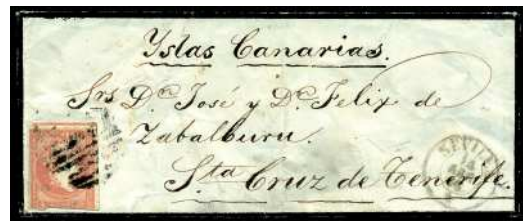 Yslas Canarias.
Srs Dn José y Dn Felix de
Zabalburu.
Sta Cruz de Tenerife.
SEVILLA